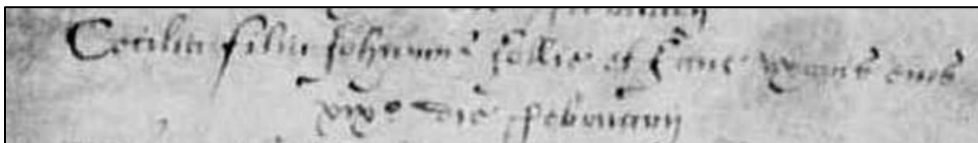 Cecilia filia Johannis et uxoris eius
xixo die Februarii